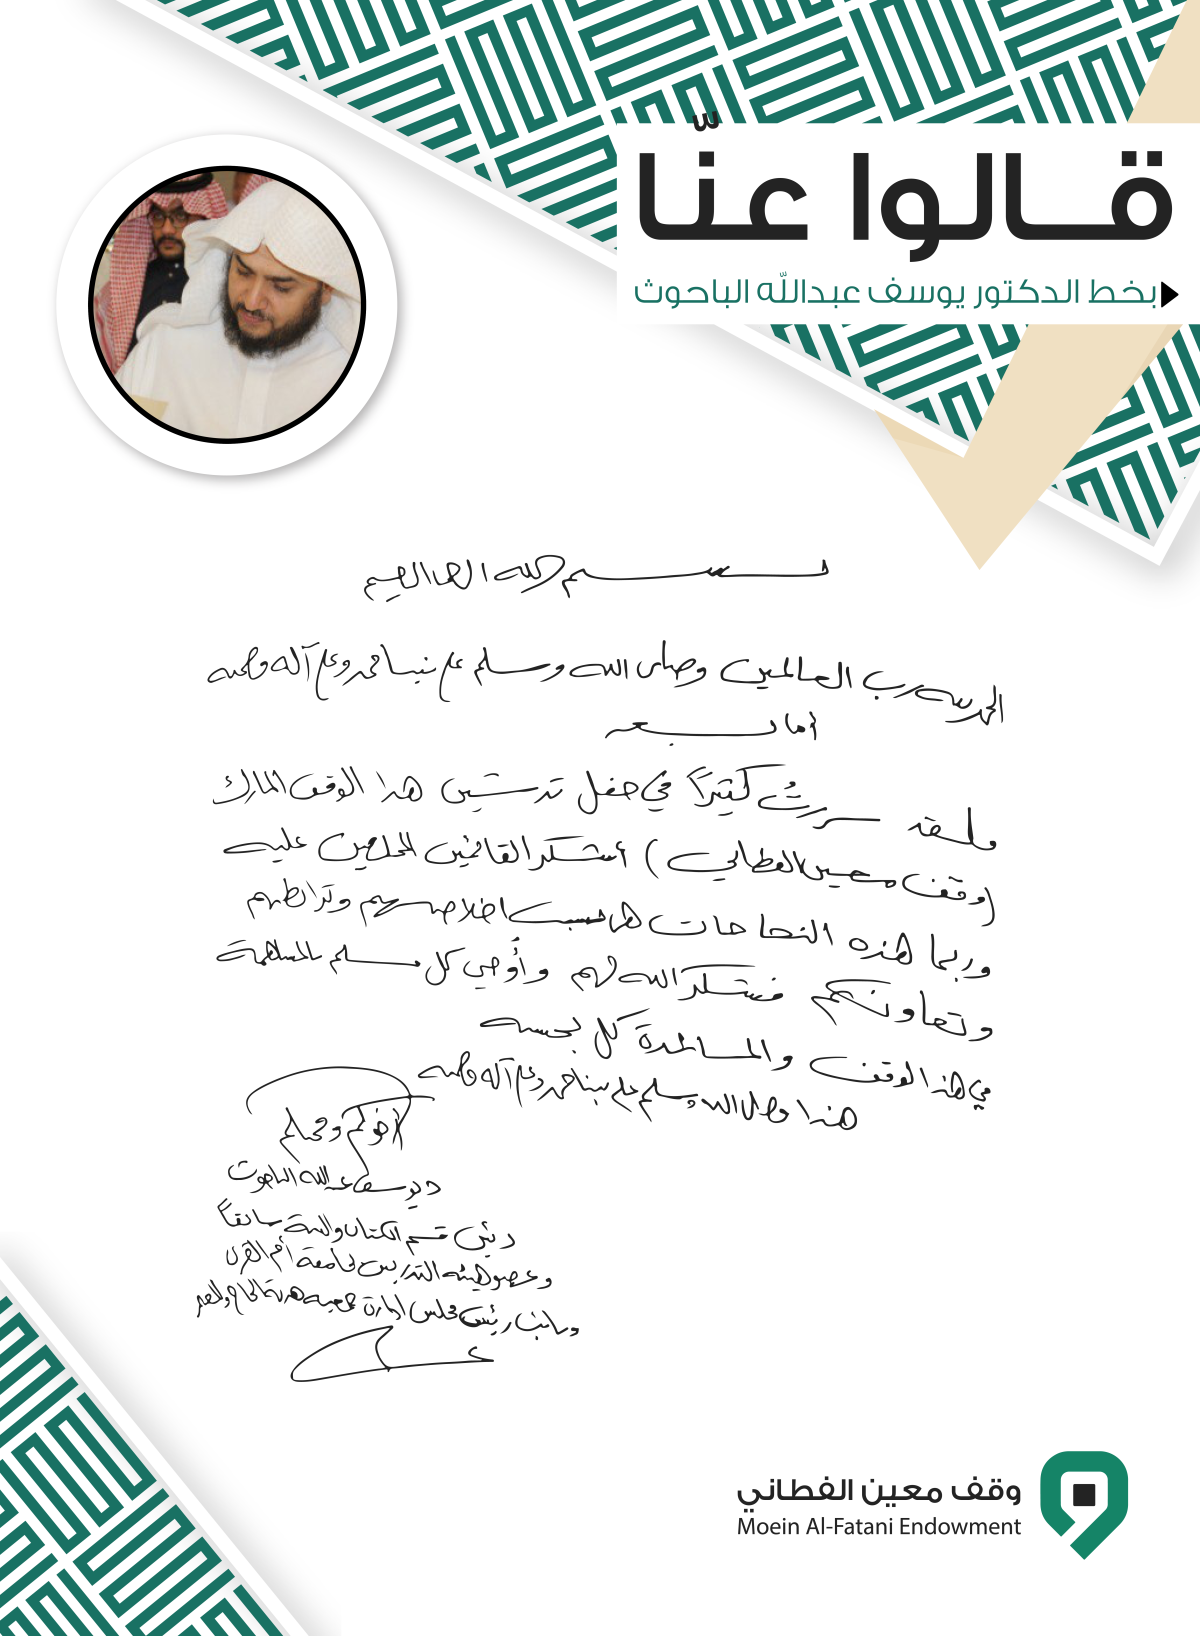 قالوا عنّا
بخط الدكتور يوسف عبدالله الباحوث
بسم الله الرحمن الرحيم
الحمد لله رب العالمين وصلى الله وسلم على نبينا محمد وعلى آله وصحبه
أما بعد
فلقد سررتُ كثيراً في حفل تدشين هذا الوقف المبارك
(وقف معين الفطاني) أشكر القائمين المخلصين عليه
وربما هذه النجاحات هي بسبب اخلاصهم وترابطهم
وتعاونهم فنشكر الله لهم وأُوصي كل مسلم بالمساهمة
في هذا الوقف والمساعدة كل بحسبه
هذا وصلى الله وسلم على نبينا محمد وعلى آله وصحبه
أخوكم ومحبكم
د يوسف عبدالله الباحوث
رئيس قسم الكتاب والسنة سابقاً
وعضو هيئة التدريس بجامعة أم القرى
ونائب رئيس مجلس إدارة جمعية هدية الحاج والمعتمر
وقف معين الفطاني
Moein Al-Fatani Endowment